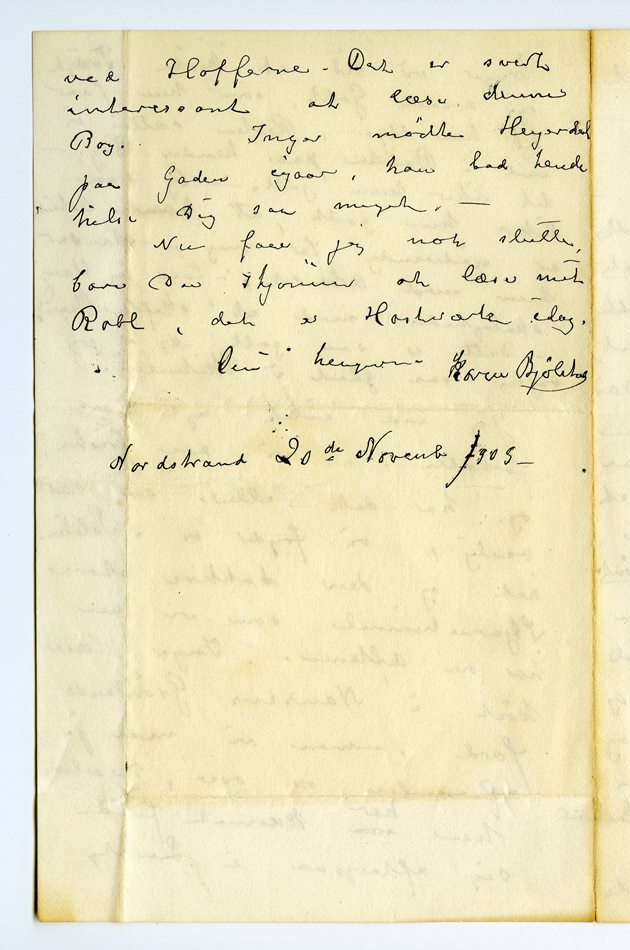 ved Hofferne - Det er svert
interessant at læse denne
Bog. Inger mødte Heyerdal
paa Gaden igaar, han bad hende
hilse Dig saa meget. —
Nu faar jeg nok slutte,
bare Du kommer at læse mit
Rabl, det er Hastværk idag.
Din hengivne Karen Bjølstad
Nordstrand 20de Novemb 1905 —